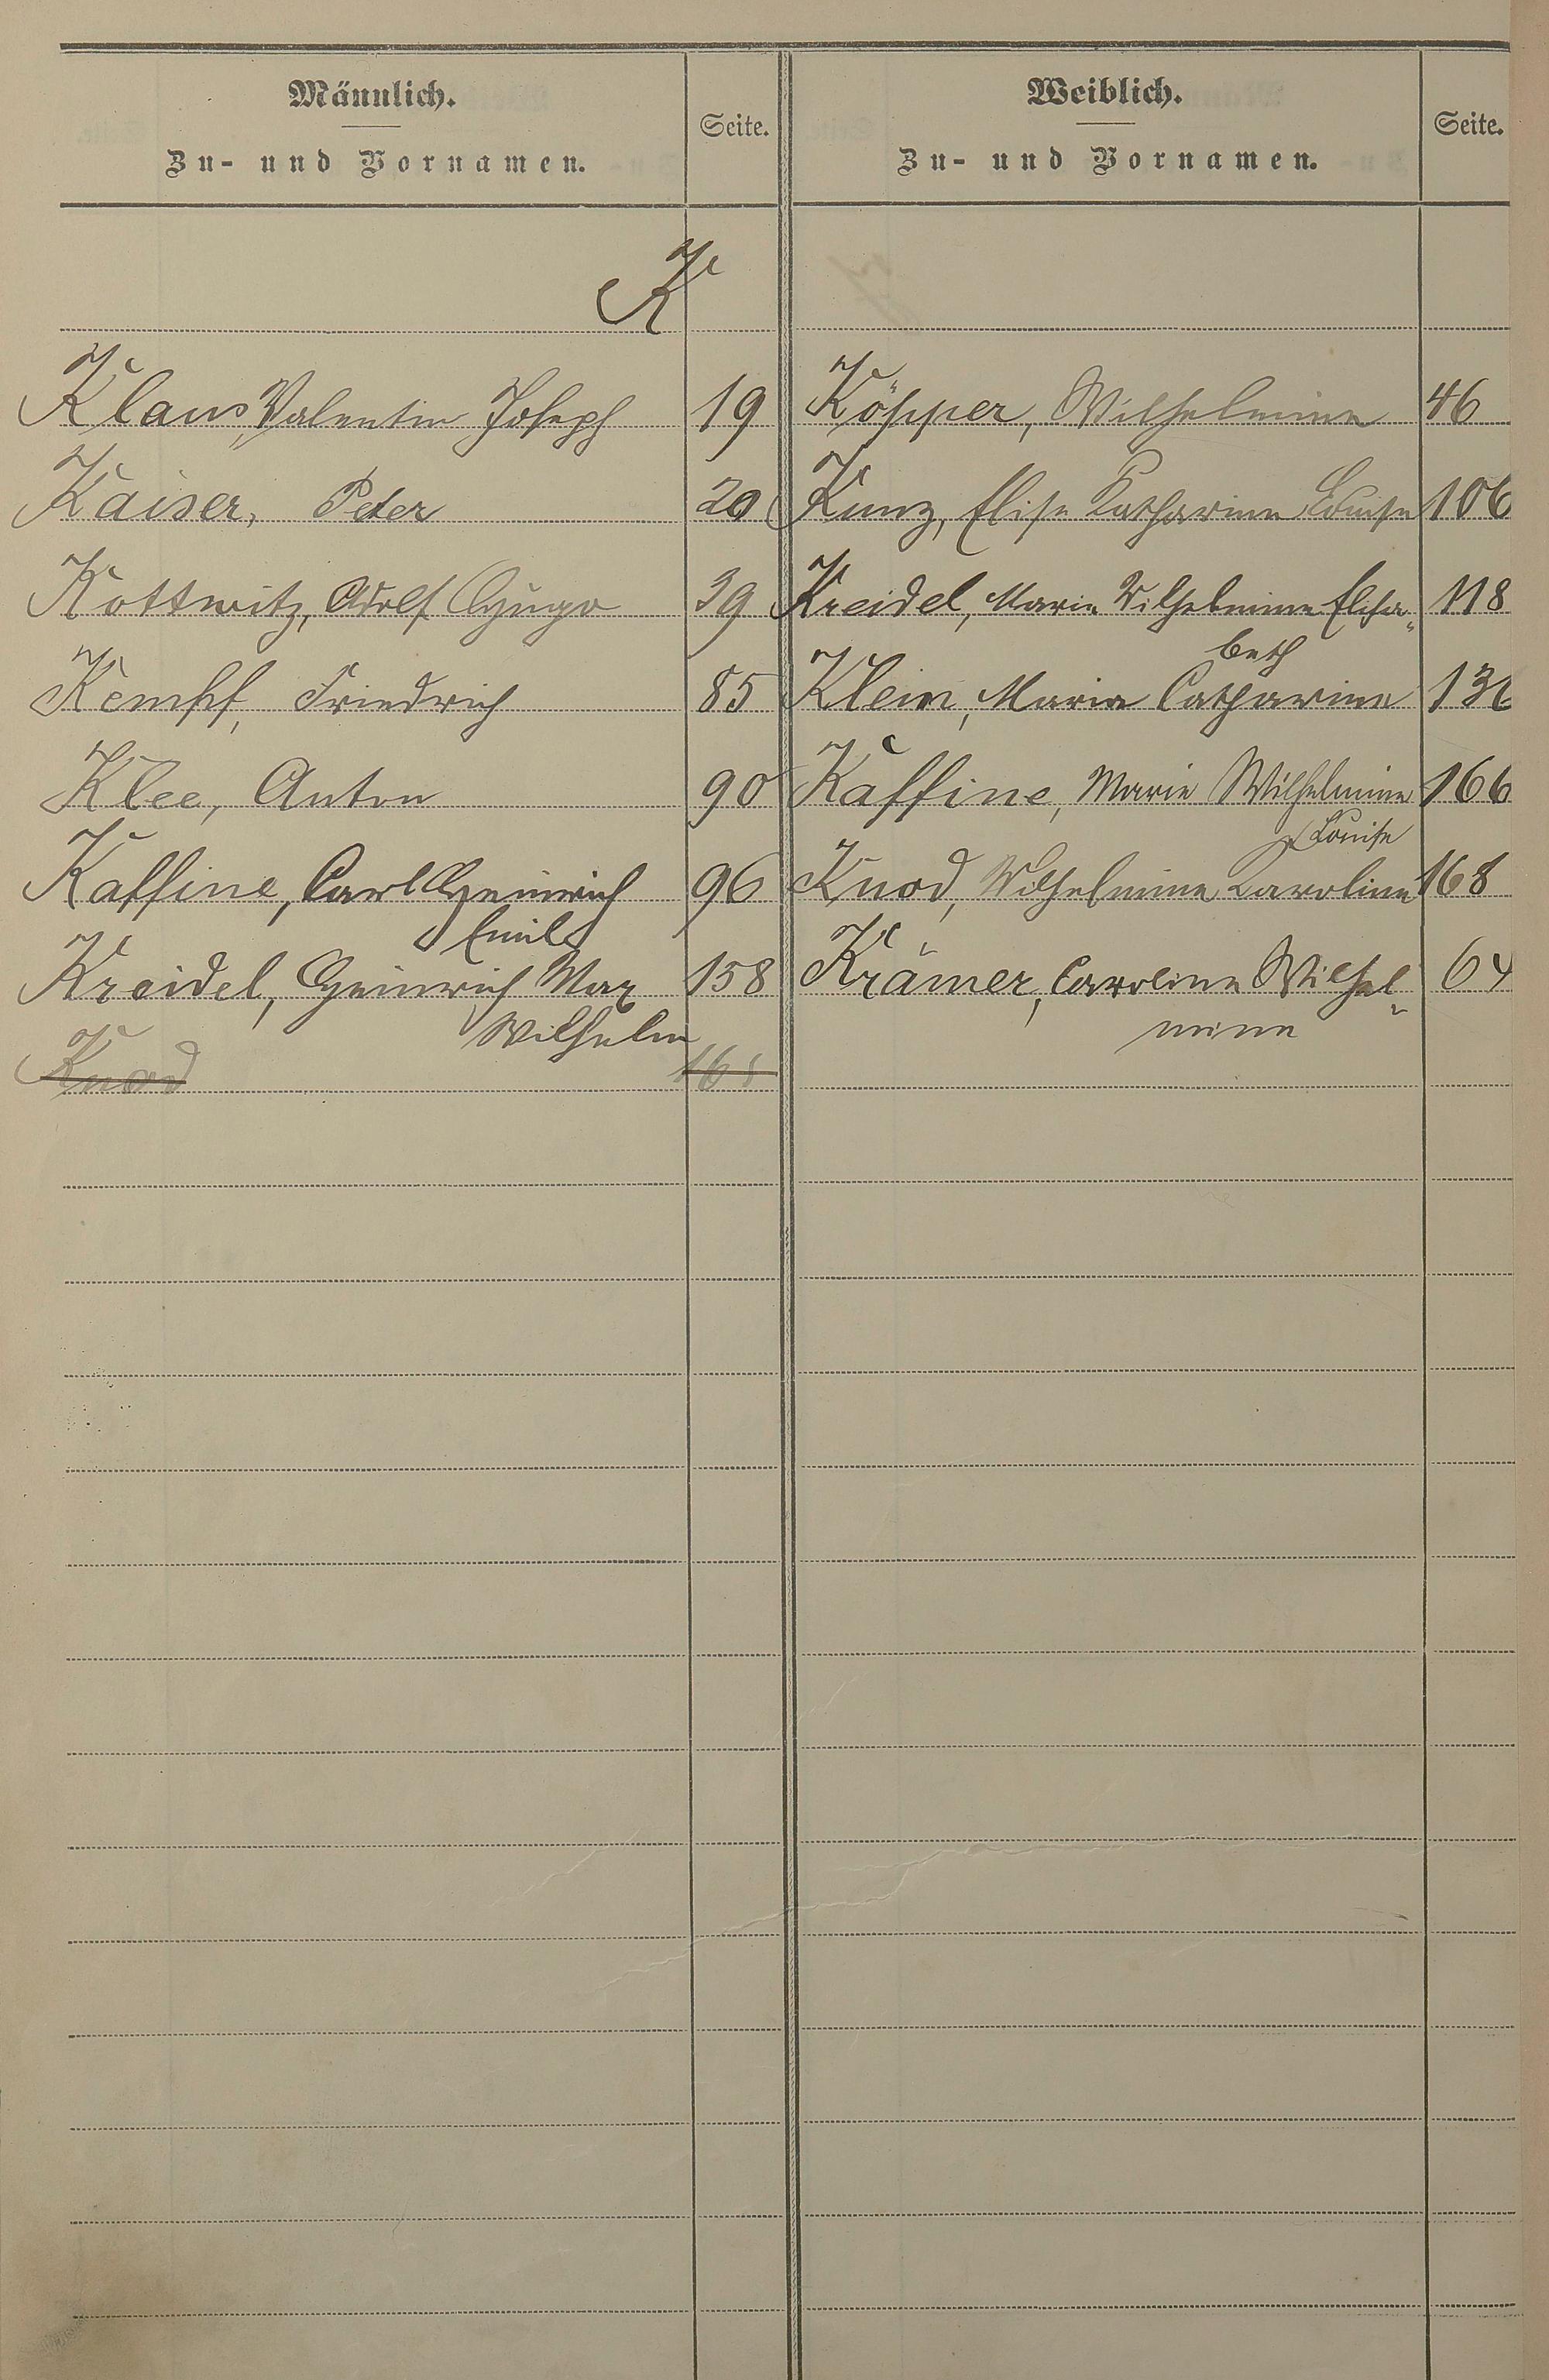 Männlich.
Zu- und Vornamen.
Seite.
Weiblich.
Zu- und Vornamen.
Seite.
K
Klaus, Valentin Joseph 19
Kaiser, Peter 20
Kottwitz, Adolf Hugo 39
Kempf, Friedrich 85
Klee, Anton 90
Kaffine, Carl Heinrich 96
Emil
Kreidel, Heinrich Max 158
Wilhelm
Knod 168
Köpper, Wilhelmine 46
Kunz, Elise Katharine Louise 106
Kreidel, Marie Wilhelmine Elisa- 118
beth
Klein, Marie Catharine 136
Kaffine, Marie Wilhelmine 166
Louise
Knod, Wilhelmine Karoline 168
Krämer, Caroline Wilhel- 64
mine